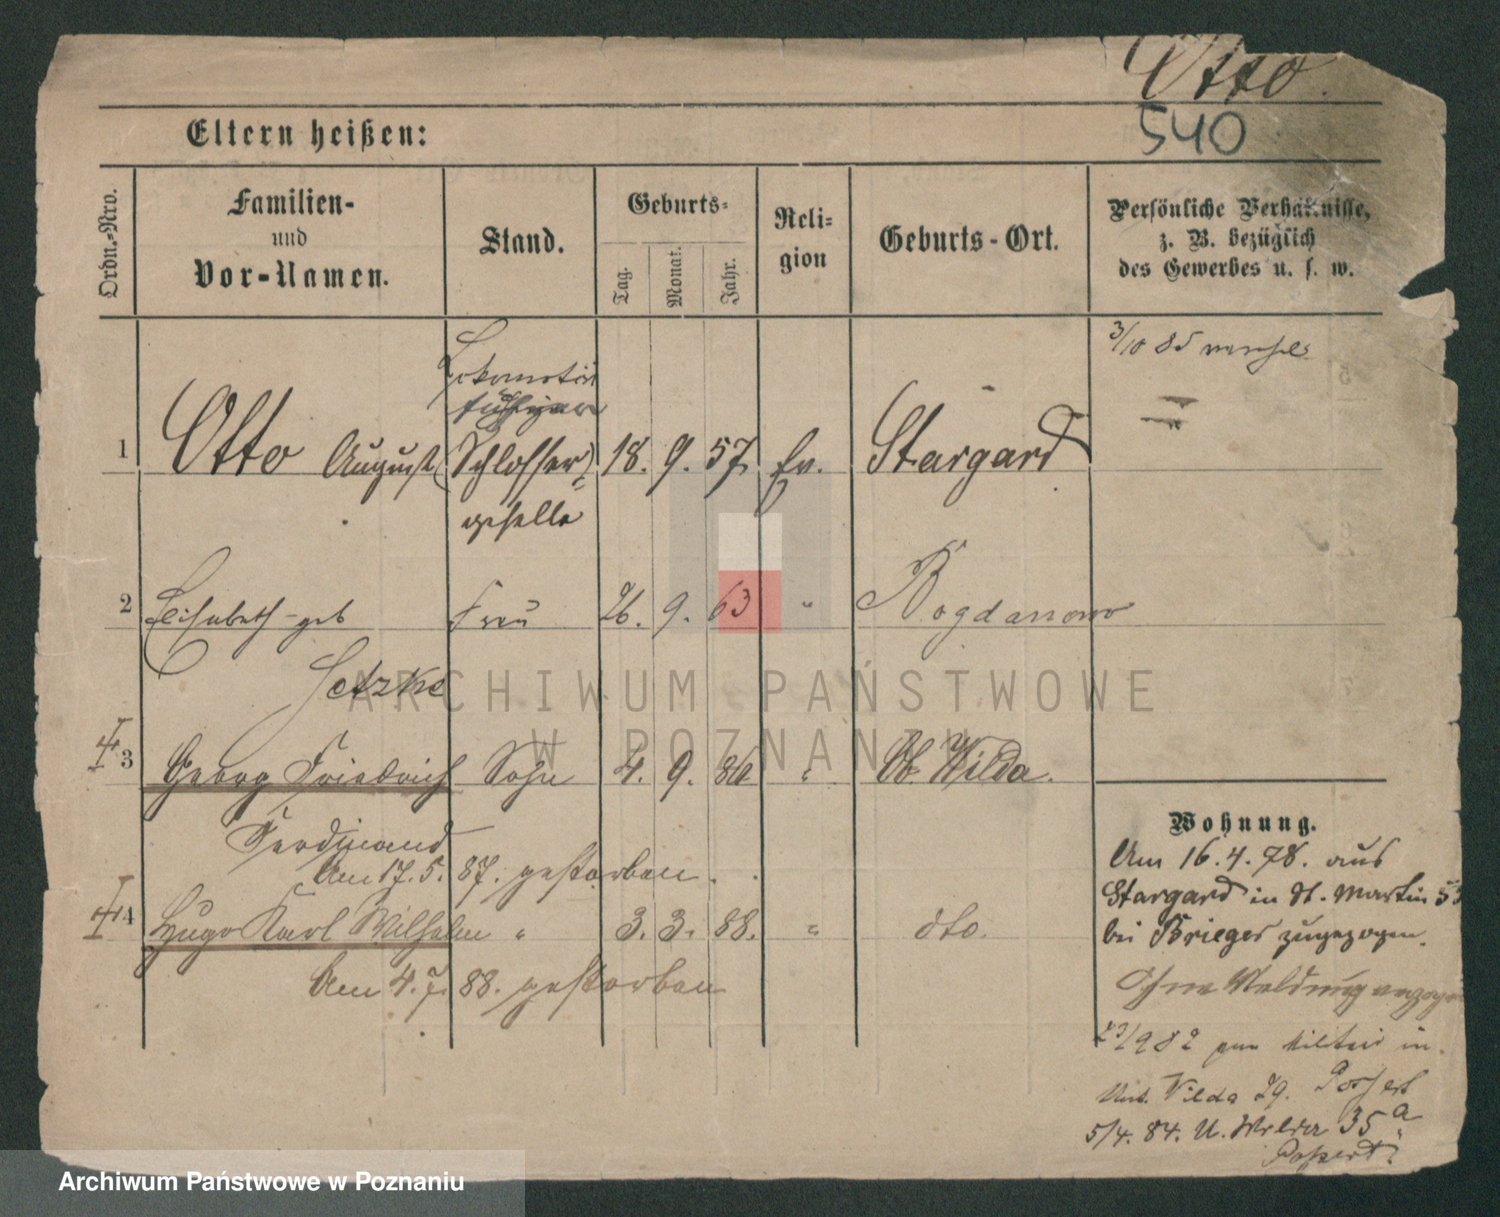 Otto.
540
Eltern heißen:
Ordn.-Nro.
Familien-
und
Vor-Namen.
Stand.
Geburts-
Tag.
Monat.
Jahr.
Reli-
gion
Geburts-Ort.
Persönliche Verhältnisse,
z. B. bezüglich
des Gewerbes u. s. w.
3/10 85
Lokomotiv
1 Otto August (Schlosser) 18. 9. 57 Ev. Stargard
geselle
2 Elisabeth geb Frau 26. 9. 63 " Bogdanowo
Jetzke
3 Georg Friedrich Sohn 4. 9. 86 " Ob. Wilda.
Ferdinand
Am 17. 5. 87. gestorben.
4 Hugo Karl Wilhelm " 3. 3. 88. " dto.
Am 4. 7. 88. gestorben
Wohnung.
Am 16. 4. 78. aus
Stargard in St. Martin 53
bei Krieger zugezogen.
Ohne Meldung
23/9 82 zum Militair in
Unt. Wilda 29.
5/4. 84. U. Wilda 35a
ARCHIWUM PAŃSTWOWE
W POZNANIU
Archiwum Państwowe w Poznaniu